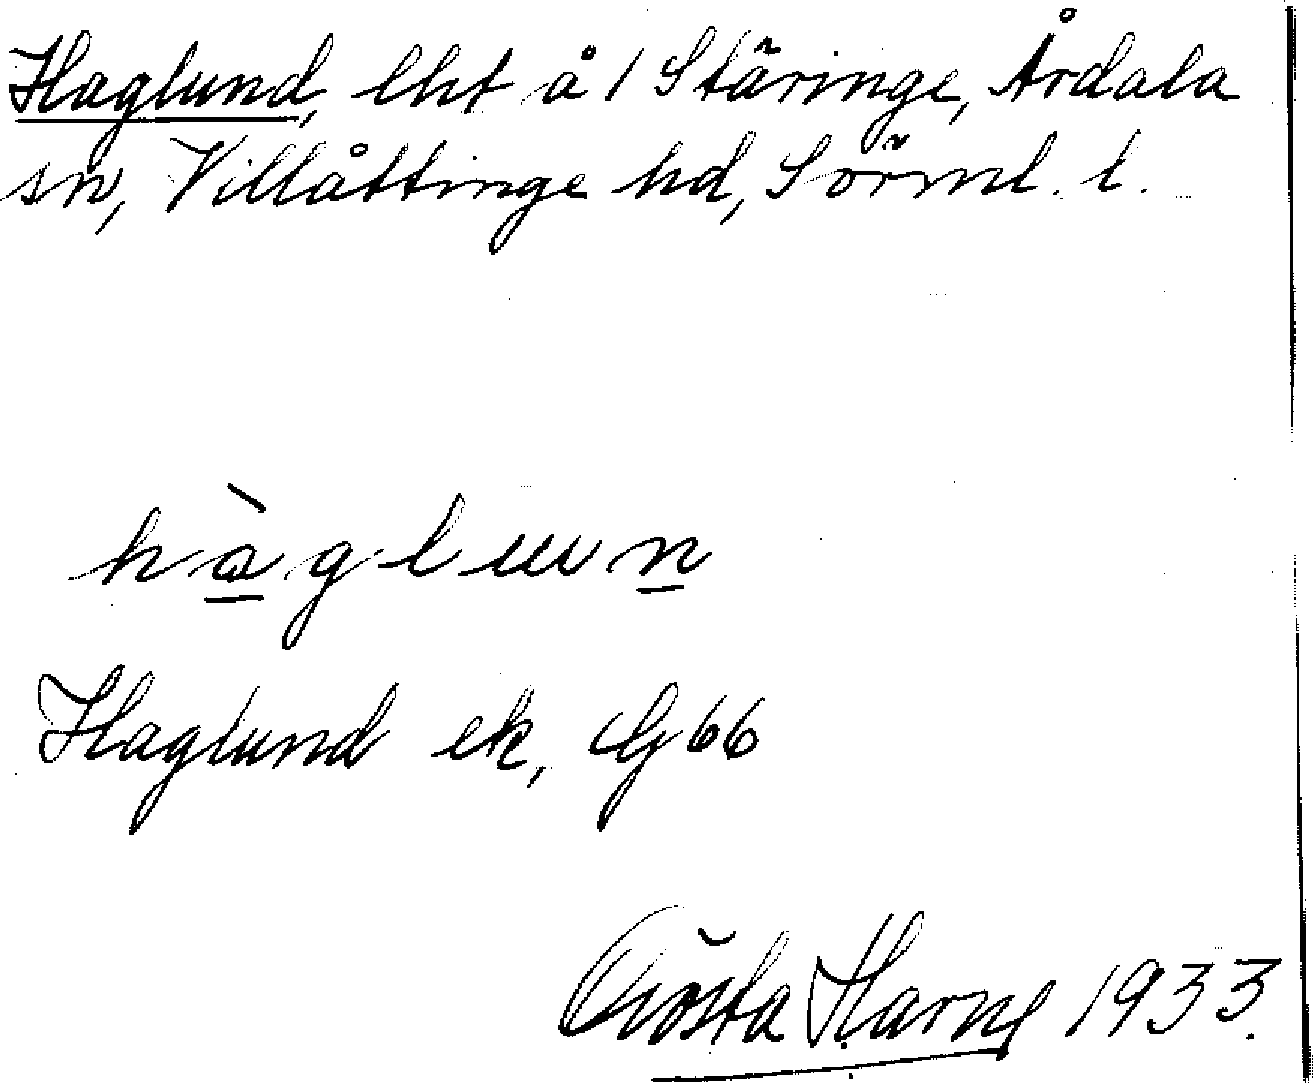 Haglund, lht å 1 Stäringe, Årdala
sn, Villåttinge hd, Sörml. l.
hàglɯn
Haglund ek, G 66
Gösta Harne 1933.